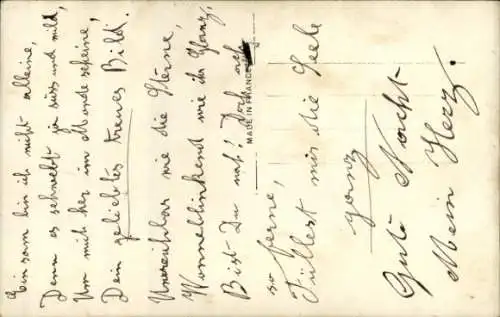 Einsam bin ich nicht alleine,
Denn es schwebt ja süss und mild,
Um mich her im Mondescheine,
Dein geliebtes treues Bild.
Unereichbar wie die Sterne,
Wonneblinkend wie ihr Glanz,
Bist Du nah! Doch ach
so ferne,
Füllest mir die Seele
ganz
Gute Nacht
Mein Herz.
MADE IN FRANCE